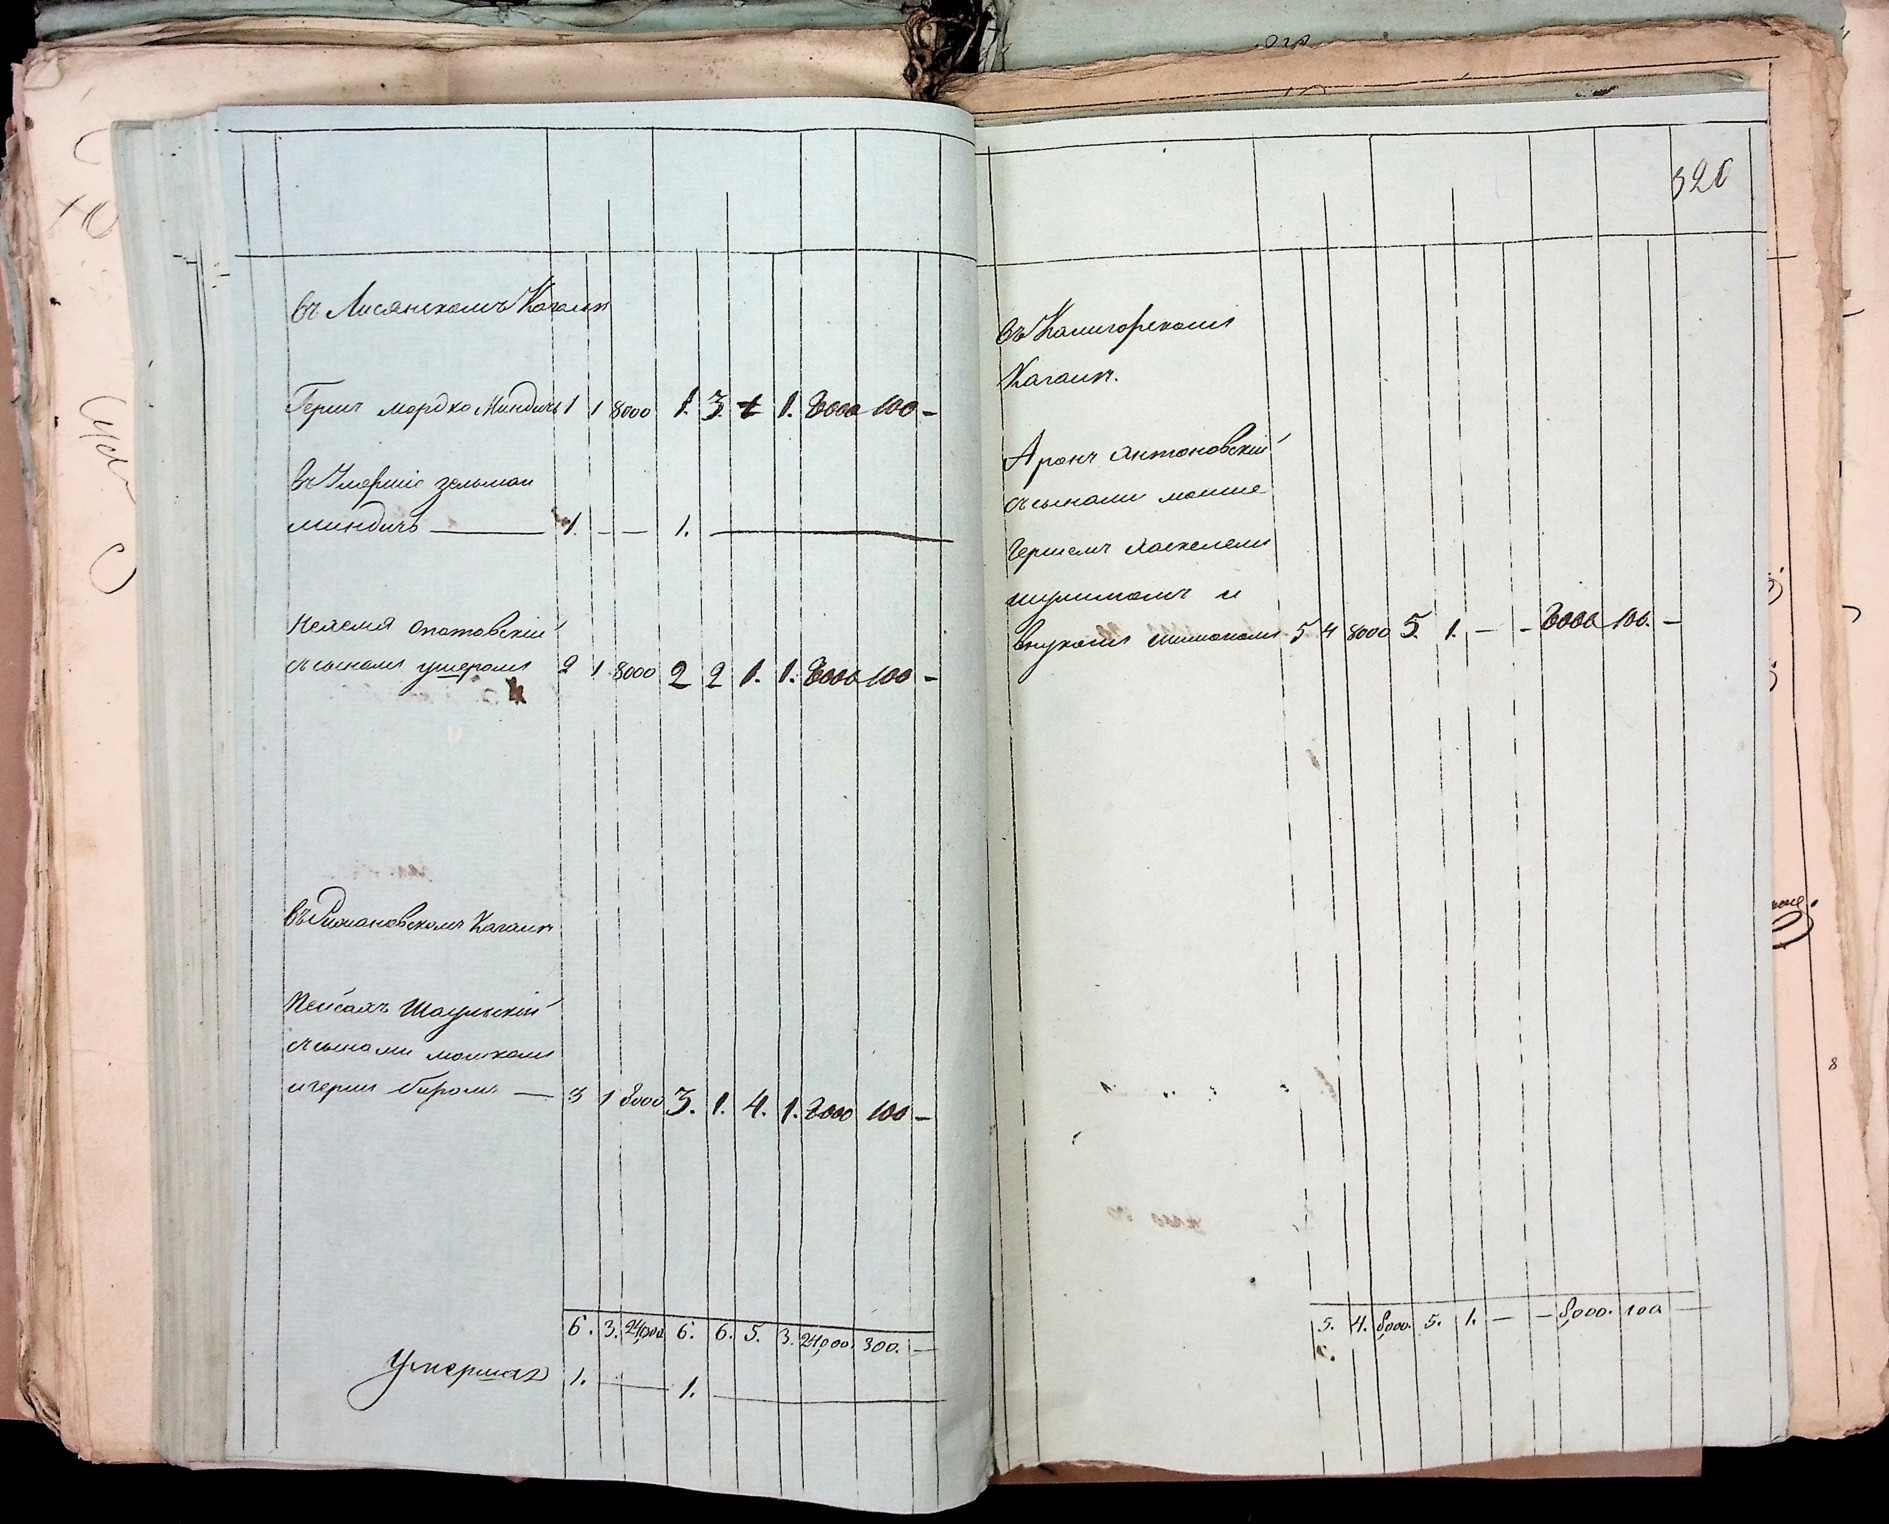 въ Лисянскомъ Кагалѣ
Гершъ мордко Миндичь 1 1 8000 1. 3. 1 1. 8000 100 –
въ Умершіе зельман
миндичь — 1. — — 1. —
Нехемія Опатовскій
съ сыномъ ушеромъ 2 1 8000 2 2 1. 1. 8000 100 –
въ Рижановскомъ Кагалѣ
Пейсахъ Шаульскій
съ сынами мошкомъ
и герш беромъ — 3 1 8000 3. 1. 4. 1. 8000 100 –
6. 3. 24,000 6. 6. 5. 3. 24,000. 300. —
Умершаго 1. — 1. —
320
въ Калигорскомъ
Кагалѣ.
Аронъ Антоновскій
съ сынами мошке
Гершемъ Хаскелемъ
и
внукомъ 5 4 8000 5. 1. — – 8000 100. –
5. 4. 8,000. 5. 1. — – 8,000. 100 —